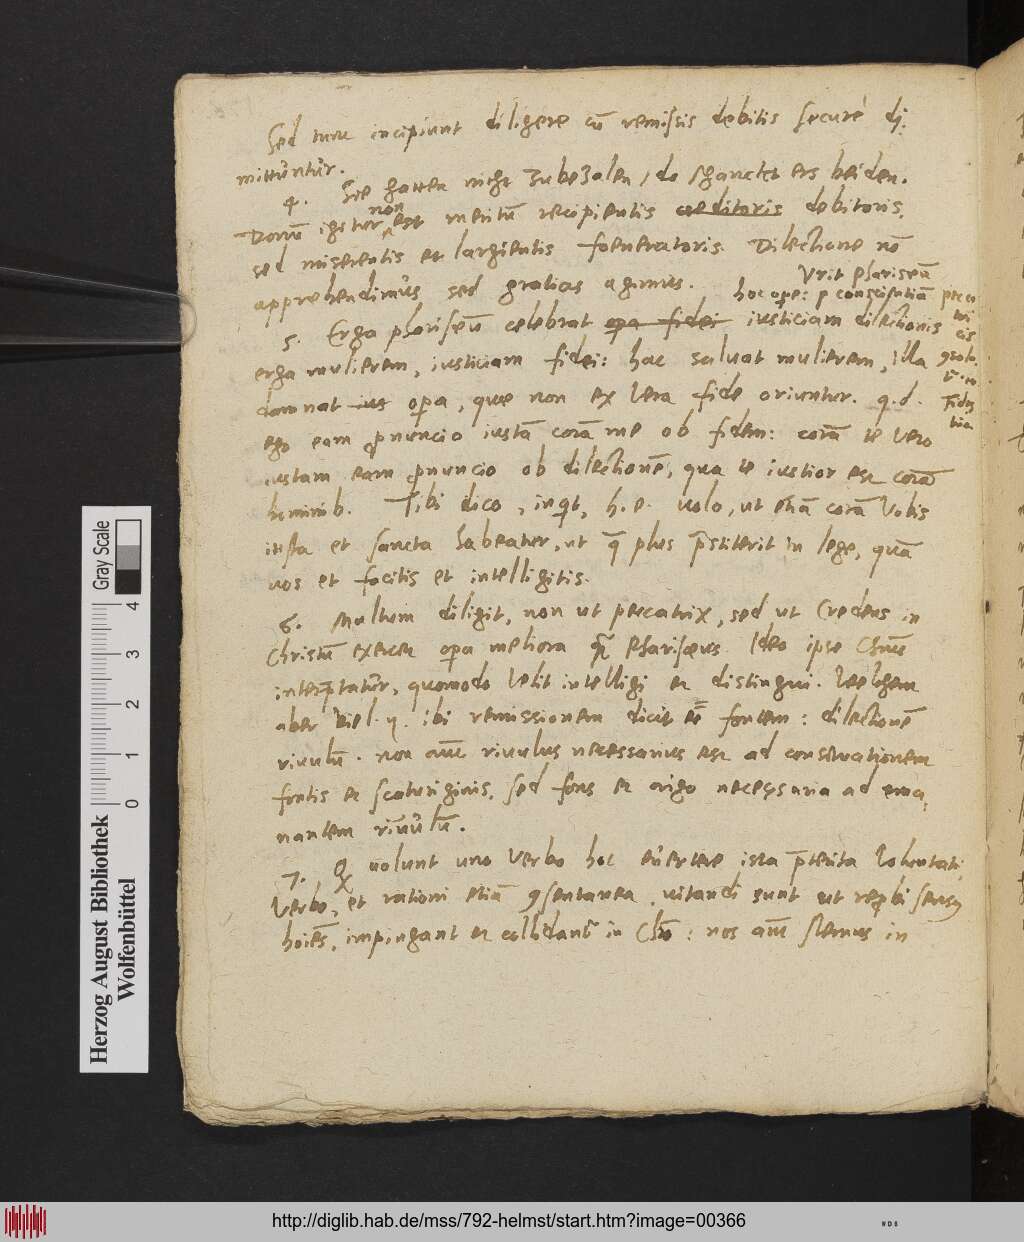 Sed tunc incipiunt diligere cū remissis debitis securè di,
mittūntūr.
4. Sie hatten nicht zubezalen, do schancket ers beiden.
Donū igitur non est meritū recipientis creditoris debitoris,
sed miserentis et largientis foeneratoris. Dilectione nō
apprehendimūs sed gratias agimus.
Vrit phariseū
hoc ope: p conscientiā
5. Erga phariseū celebrat opa fidei iusticiam dilectionis
erga mulierem, iusticiam fidei: hac saluat mulierem, illa
damnat ius opa, quae non ex vera fide oriuntur. q.d.
ego eam pnuncio iustā corā me ob fidem: corā te vero
iustam eam pnuncio ob dilectionē, qua te iustior est corā
hominib. Tibi dico, inqt, h.e. uolo, ut etiā corā vobis
iusta et sancta habeatur, ut q plus pstiterit in lege, quā
uos et facitis et intelligitis.
6. Multum diligit, non ut peccatrix, sed ut credens in
Christū exercet opa meliora qm Phariseus. Ideo ipse Chrūs
interptatūr, quomodo velit intelligi et distingui. Welchem
aber viel. y. ibi remissionem dicit eē fontem: dilectionē
riuulū. non aūt riuulus necessarius est ad conseruationem
fontis et scaturiginis, sed fons et origo necessaria ad ema,
nantem riuūlū.
7. Q uolunt uno verbo hoc euertere ista pterita voluntati,
verbo, et rationi etiā 9sentanea, uitandi sunt ut repbi sensq
hoiēs, impingant et collidant in Chro: nos aūt stemus in
Herzog August Bibliothek
Wolfenbüttel
Gray Scale
0 1 2 3 4
http://diglib.hab.de/mss/792-helmst/start.htm?image=00366